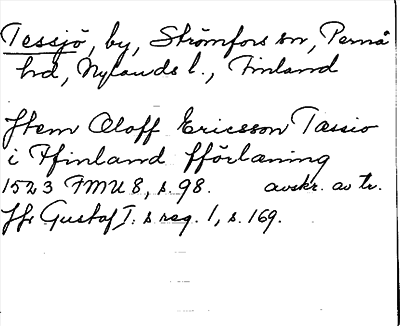 Tessjö, by, Strömfors sn, Pernå
hd, Nylands l., Finland
Jtem Oloff Ericsson Tassio
i Ffinland fförlæning
1523 FMU 8, s. 98. avskr. av tr.
Jfr Gustaf I:s reg. 1, s. 169.